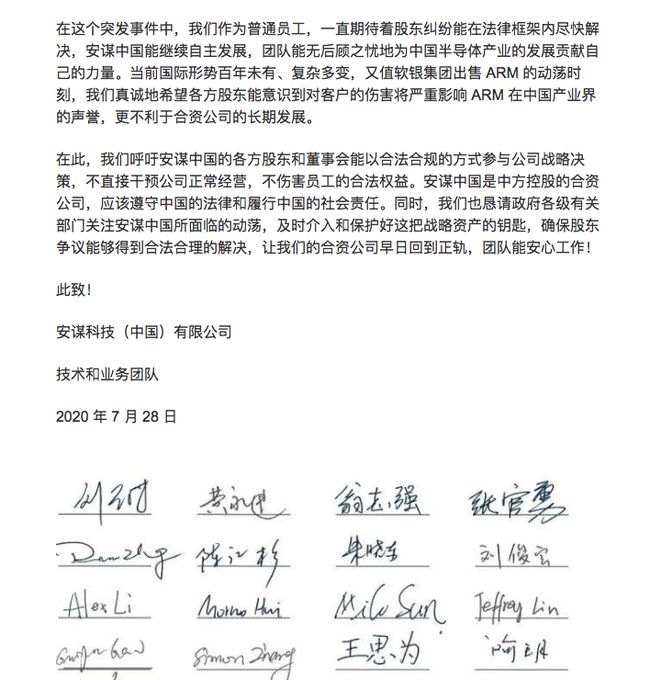 在这个突发事件中，我们作为普通员工，一直期待着股东纠纷能在法律框架内尽快解
决，安谋中国能继续自主发展，团队能无后顾之忧地为中国半导体产业的发展贡献自
己的力量。当前国际形势百年未有、复杂多变，又值软银集团出售 ARM 的动荡时
刻，我们真诚地希望各方股东能意识到对客户的伤害将严重影响 ARM 在中国产业界
的声誉，更不利于合资公司的长期发展。
在此，我们呼吁安谋中国的各方股东和董事会能以合法合规的方式参与公司战略决
策，不直接干预公司正常经营，不伤害员工的合法权益。安谋中国是中方控股的合资
公司，应该遵守中国的法律和履行中国的社会责任。同时，我们也恳请政府各级有关
部门关注安谋中国所面临的动荡，及时介入和保护好这把战略资产的钥匙，确保股东
争议能够得到合法合理的解决，让我们的合资公司早日回到正轨，团队能安心工作！
此致！
安谋科技（中国）有限公司
技术和业务团队
2020 年 7 月 28 日
翁志强 张官勇
朱晓东 刘俊宏
Alex Li Jeffrey Lin
Simon Zhang 王思为